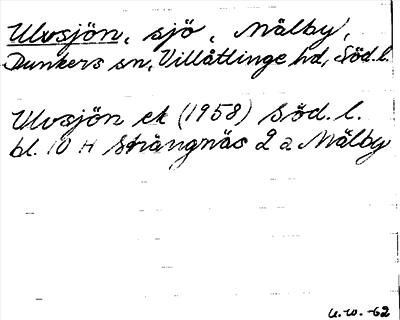 Ulvsjön, sjö, Mälby,
Dunkers sn, Villåttinge hd, Söd.l.
Ulvsjön ek (1958) Söd. l.
bl. 10 H Strängnäs 2 a Mälby
u.w. -62